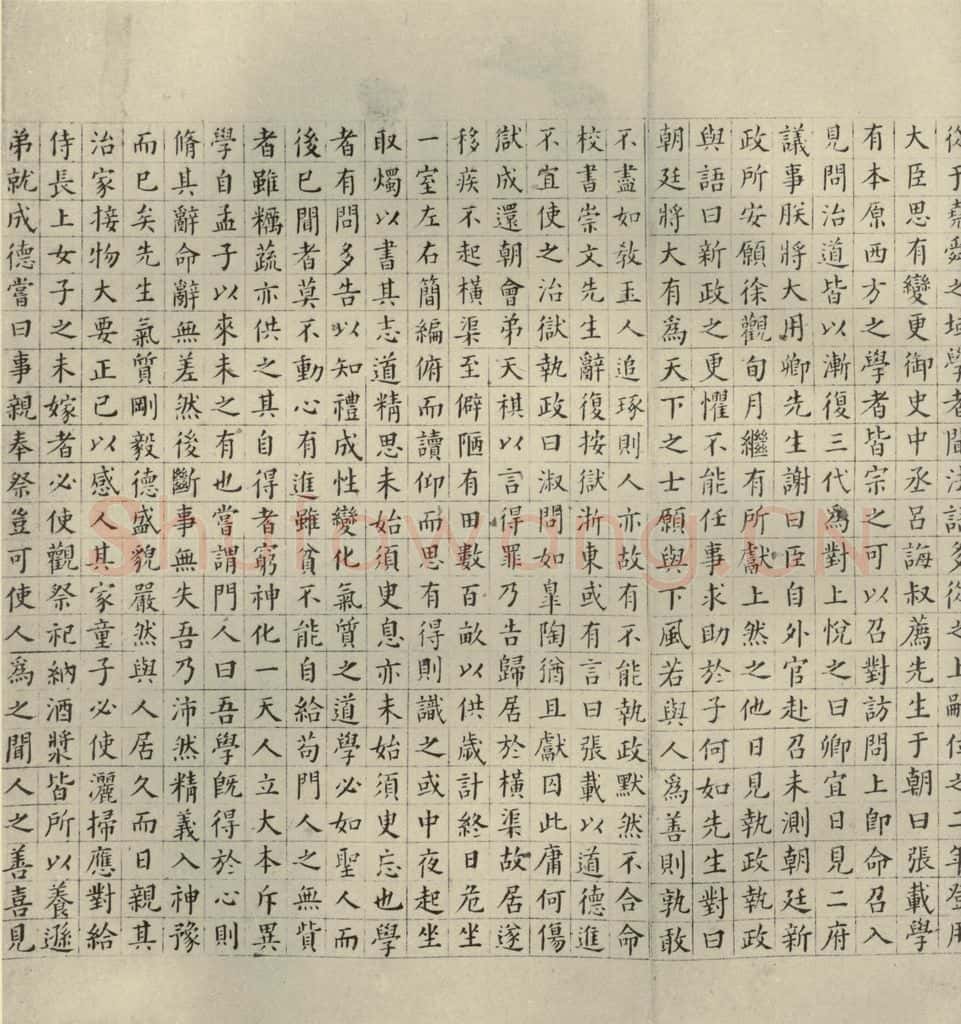 從于堯舜之域學者聞法語多從之上嗣位之二年登用
大臣思有變更御史中丞呂誨叔薦先生于朝曰張載學
有本原西方之學者皆宗之可以召對訪問上卽命召入
見問治道皆以漸復三代為對上悅之曰卿宜日見二府
議事朕將大用卿先生謝曰臣自外官赴召未測朝廷新
政所安願徐觀旬月繼有所獻上然之他日見執政執政
與語曰新政之更懼不能任事求助於子何如先生對曰
朝廷將大有為天下之士願與下風若與人為善則孰敢
不盡如敎玉人追琢則人亦故有不能執政默然不合命
校書崇文先生辭復按獄浙東或有言曰張載以道德進
不宜使之治獄執政曰淑問如臯陶猶且獻囚此庸何傷
獄成還朝會弟天祺以言得罪乃告歸居於橫渠故居遂
移疾不起橫渠至僻陋有田數百畝以供歲計終日危坐
一室左右簡編俯而讀仰而思有得則識之或中夜起坐
取燭以書其志道精思未始須臾息亦未始須臾忘也學
者有問多告以知禮成性變化氣質之道學必如聖人而
後已聞者莫不動心有進雖貧不能自給苟門人之無貲
者雖糲蔬亦供之其自得者窮神化一天人立大本斥異
學自孟子以來未之有也嘗謂門人曰吾學既得於心則
脩其辭命辭無差然後斷事無失吾乃沛然精義入神豫
而已矣先生氣質剛毅德盛貌嚴然與人居久而日親其
治家接物大要正己以感人其家童子必使灑掃應對給
侍長上女子之未嫁者必使觀祭祀納酒漿皆所以養遜
弟就成德嘗曰事親奉祭豈可使人為之聞人之善喜見
Shufawang.CN